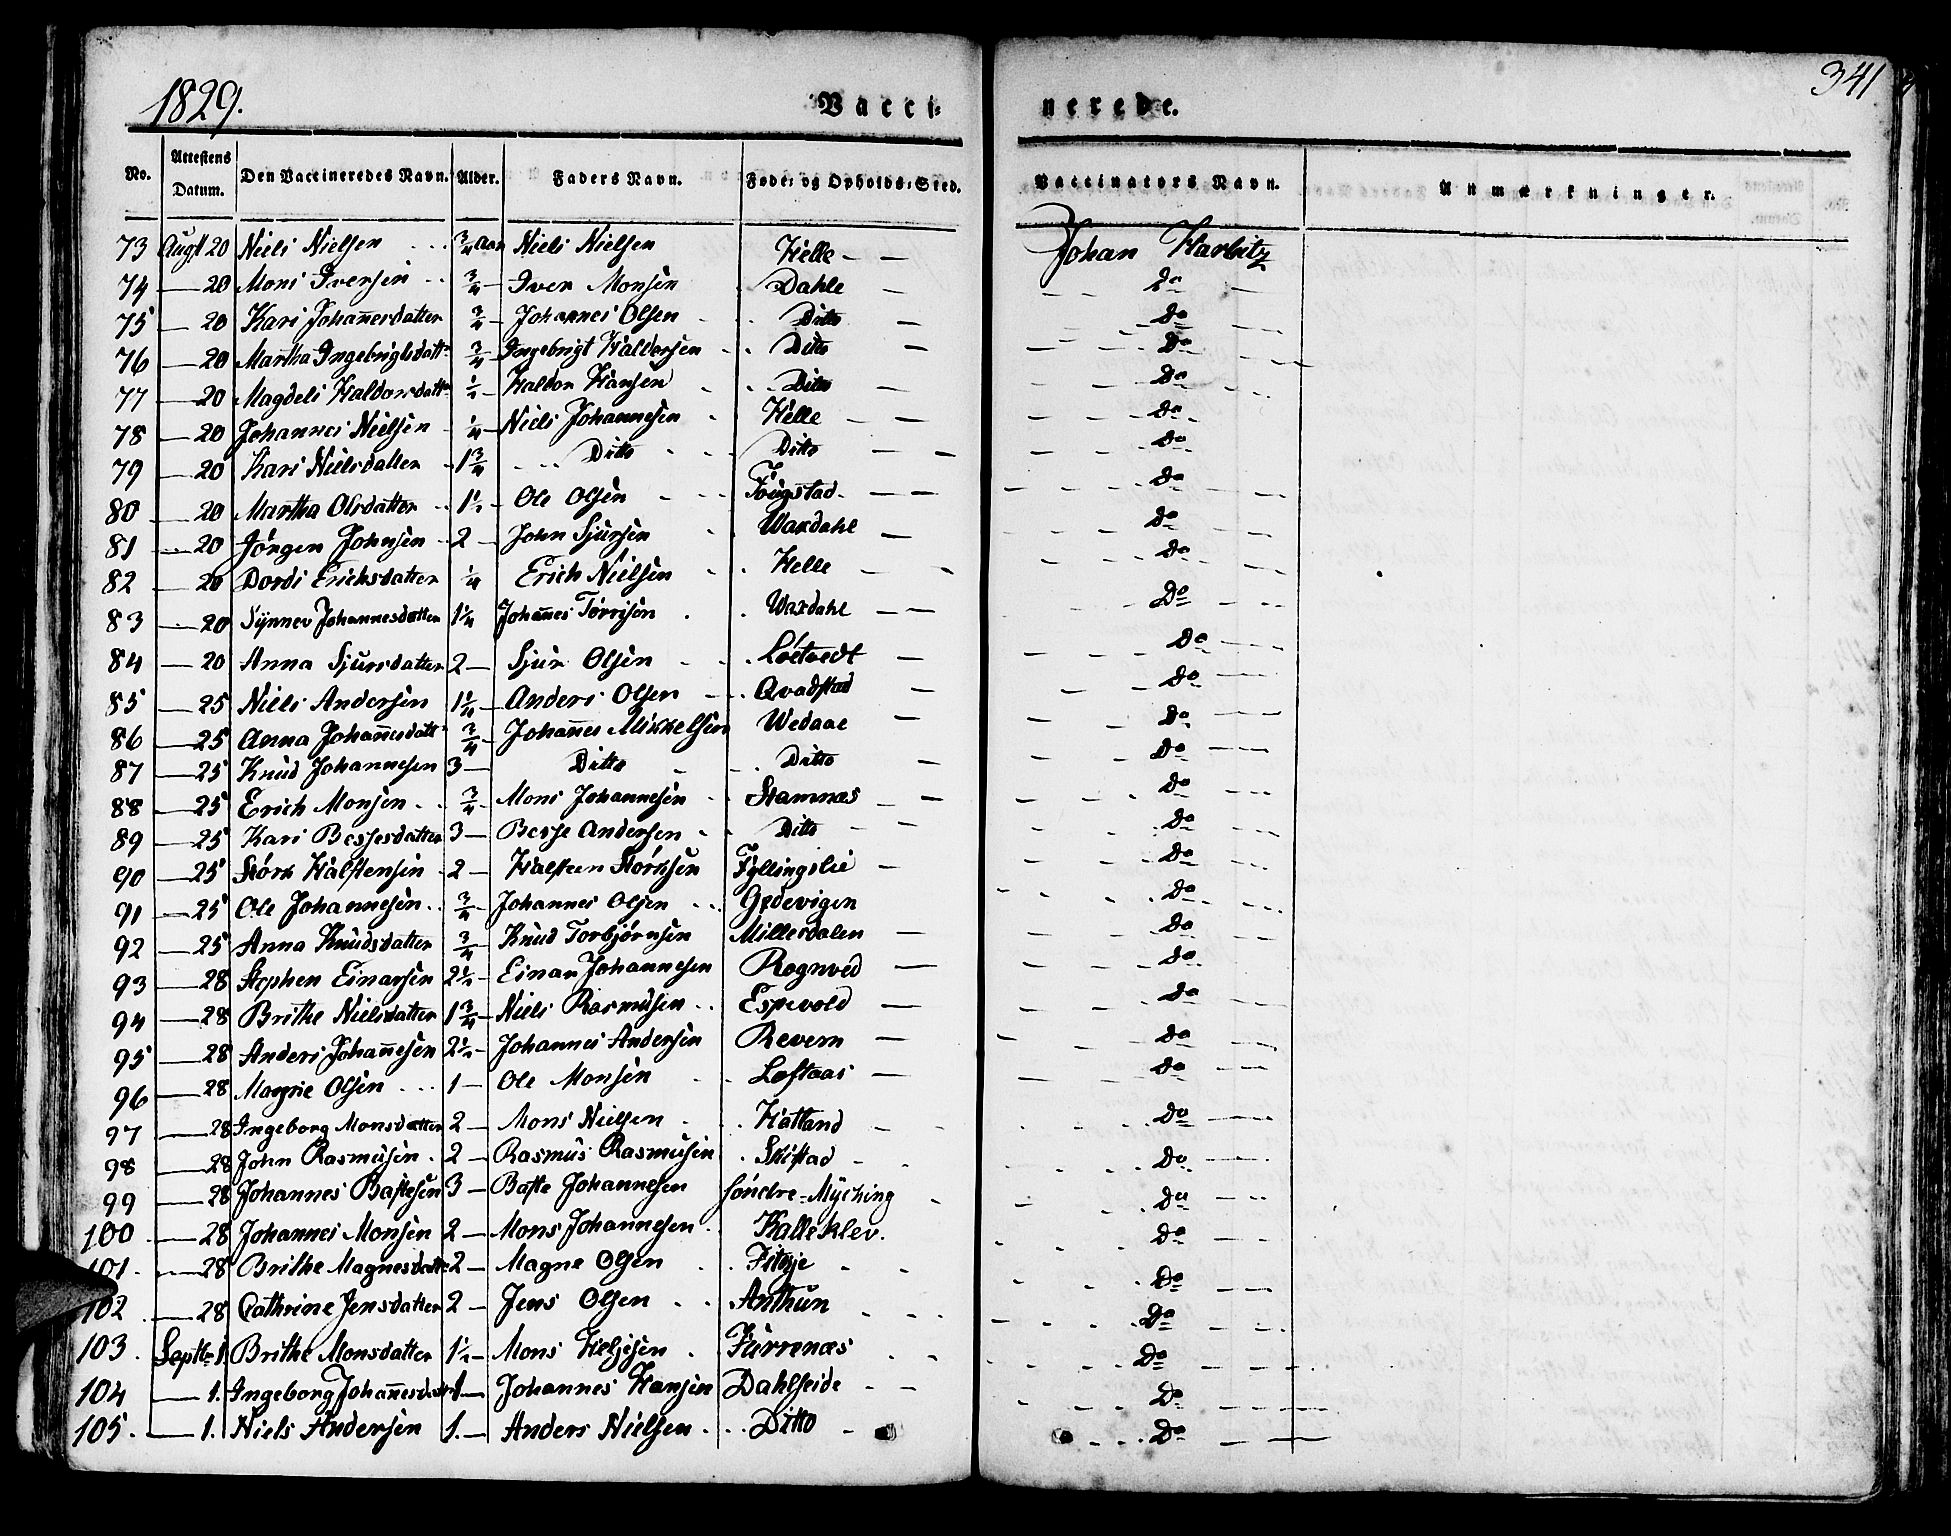 1829. Vacci= nerede. 341
No. Attestens Datum. Den Vaccineredes Navn. Alder. Faders Navn. Føde= og Opholds=Sted. Vaccinators Navn. Anmærkninger.
73 Augst 20 Niels Nielsen 3/4 Aar Niels Nielsen Helle Johan Harbitz
74 — 20 Mons Iversen 3/4 — Iver Monsen Dahle do
75 — 20 Kari Johannesdatter 3/4 — Johannes Olsen Ditto do
76 — 20 Martha Ingebrigtsdatt 3/4 — Ingebrigt Haldorsen Ditto do
77 — 20 Magdeli Haldorsdatt 1/2 — Haldor Hansen Ditto do
78 — 20 Johannes Nielsen 1/4 — Niels Johannesen Helle do
79 — 20 Kari Nielsdatter 1 3/4 Ditto Ditto do
80 — 20 Martha Olsdatter 1 1/2 — Ole Olsen Fougstad do
81 — 20 Jörgen Johnsen 2 — John Sjursen Waxdahl do
82 — 20 Dordi Erichsdatter 1/4 Erich Nielsen Helle do
83 — 20 Synnev Johannesdatter 1 1/4 Johannes Torrisen Waxdahl Do
84 — 20 Anna Sjursdatter 2 — Sjur Olsen Loetvedt Do
85 — 25 Niels Andersen 1 1/4 — Anders Olsen Qvadstad do
86 — 25 Anna Johannesdatt 3/4 — Johannes Mikkelsen Wedaae do
87 — 25 Knud Johannesen 3 — Ditto Ditto do
88 — 25 Erich Monsen 3/4 — Mons Johannesen Stamnæs do
89 — 25 Kari Bessesdatter 3 — Besse Andersen Ditto do
90 — 25 Störk Halstensen 2 — Halsteen Störksen Fyllingslie do
91 — 25 Ole Johannesen 3/4 — Johannes Olsen Gedevigen do
92 — 25 Anna Knudsdatter 3/4 — Knud Torbjørnsen Millerdalen do
93 — 28 Stephen Einarsen 2 1/2 — Einar Johannesen Rognved do
94 — 28 Brithe Nielsdatter 1 3/4 — Niels Rasmusen Espevold do
95 — 28 Anders Johannesen 2 1/2 — Johannes Andersen Revem do
96 — 28 Magne Olsen 1 — Ole Monsen Loftaas do
97 — 28 Ingeborg Monsdatter 2 — Mons Nielsen Hatland do
98 — 28 John Rasmusen 2 — Rasmus Rasmusen Skistad do
99 — 28 Johannes Bastesen 3 — Baste Johannesen Söndre=Myching do
100 — 28 Johannes Monsen 2 — Mons Johannesen Kalleklev. do
101. — 28 Brithe Magnesdatte 2 — Magne Olsen Fitsje do
102 — 28 Cathrine Jensdatter 2 — Jens Olsen Anthun Do
103. Septbr 1. Brithe Monsdatter 1 1/2 — Mons Heljesen Furrenæs Do
104 — 1. Ingeborg Johannesdatter 1 — Johannes Hansen Dahlseide Do
105. — 1. Niels Andersen 1. — Anders Nielsen Ditto Do